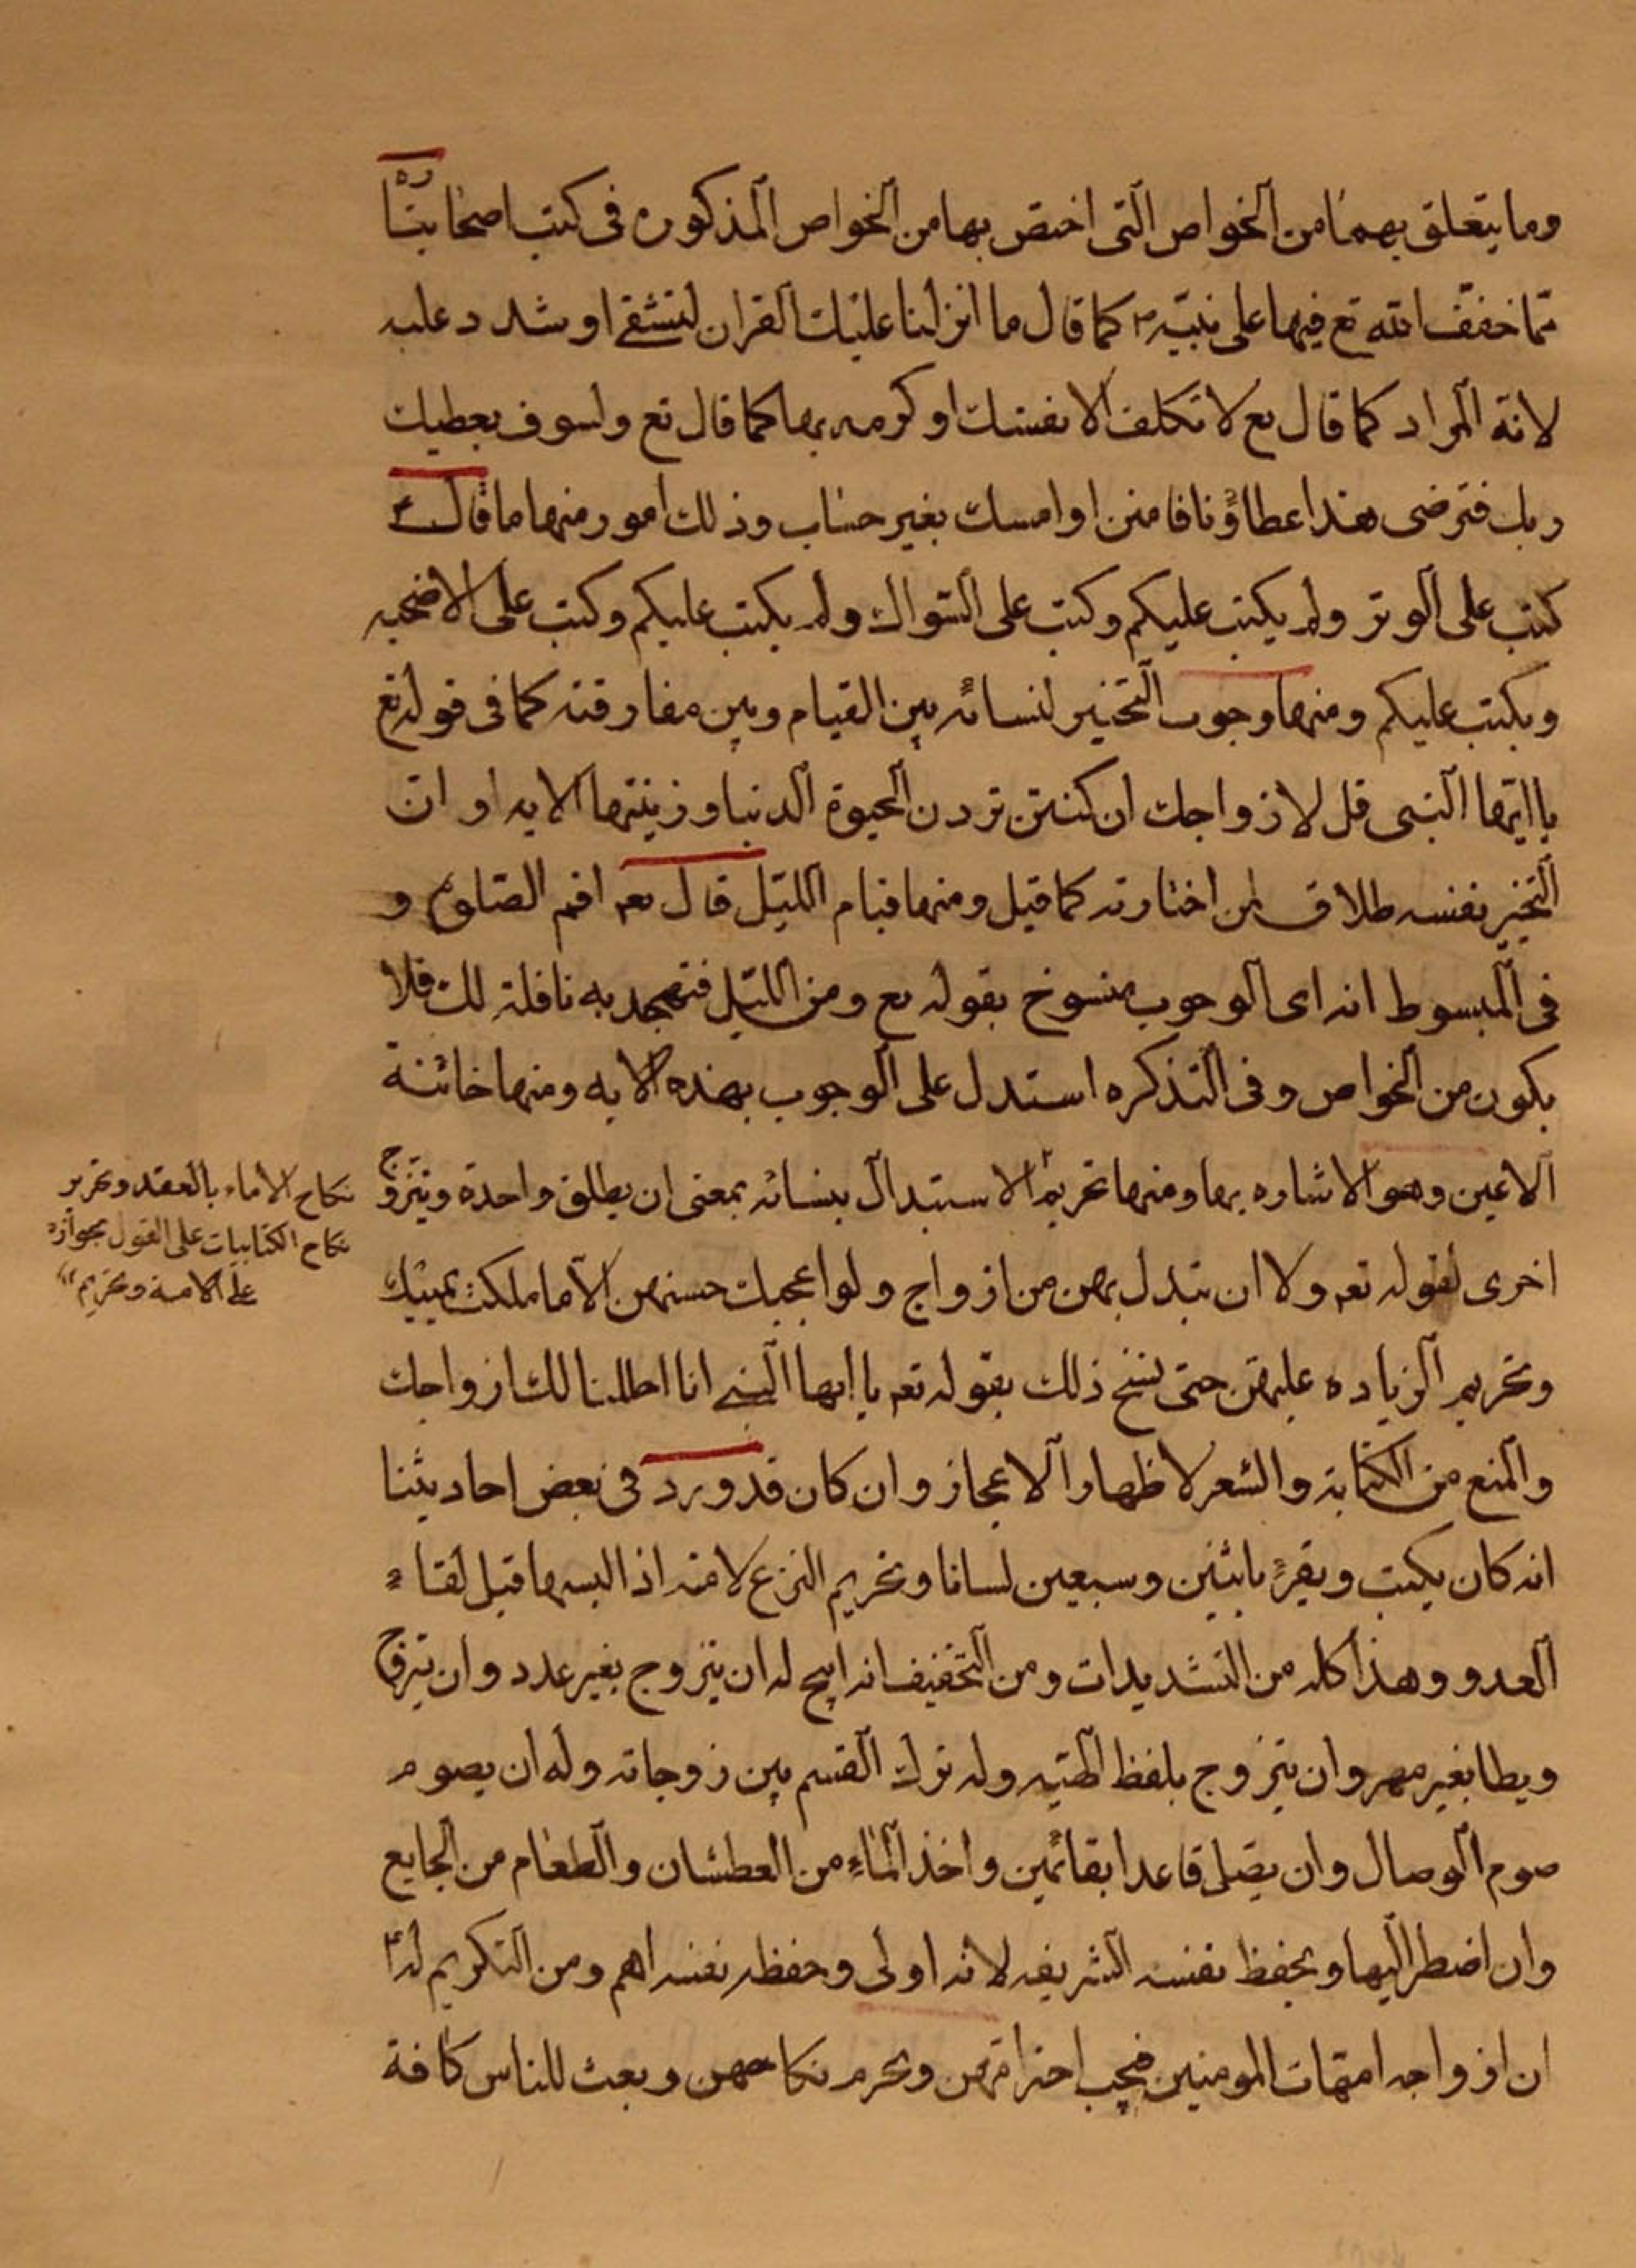 وما يتعلق بهما من الخواص التى اختص بها من الخواص المذكوره فى كتب اصحابنا ره
مما خفف الله تع فيها على نبيه ص كما قال ما انزلنا عليك القران لتشقى او شدد عليه
لانه المراد كما قال تع لا تكلف الا نفسك او كرمه بها كما قال تع ولسوف يعطيك
ربك فترضى هذا عطاؤنا فامنن او امسك بغير حساب وذلك امور منها ما قال ص
كتب على الوتر ولم يكتب عليكم وكتب على السواك ولم يكتب عليكم وكتب على الاضحيه
ويكتب عليكم ومنها وجوب التخيير لنسائه بين القيام وبين مفارقته كما فى قوله تع
يا ايها النبى قل لازواجك ان كنتن تردن الحيوة الدنيا وزينتها الايه او ان
التخيير نفسه طلاق لمن اختارته كما قيل ومنها قيام الليل قال تعه اقم الصلوة و
فى المبسوط انه اى الوجوب منسوخ بقوله تع ومن الليل فتهجد به نافلة لك فلا
يكون من الخواص وفى التذكره استدل على الوجوب بهذه الايه ومنها خائنة
الاعين وهو الاشاره بها ومنها تحريم الاستبدال بنسائه بمعنى ان يطلق واحدة ويتزوج
اخرى لقوله تعه ولا ان تبدل بهن من ازواج ولو اعجبك حسنهن الا ما ملكت يمينك
وتحريم الزياده عليهن حتى نسخ ذلك بقوله تعه يا ايها النبى انا احللنا لك ازواجك
والمنع من الكتابة والشعر لاظهار الاعجاز وان كان قد ورد فى بعض احاديثنا
انه كان يكتب ويقرء باثنين وسبعين لسانا وتحريم النزع لامته اذا لبسها قبل لقاء
العدو وهذا كله من التشديدات ومن التخفيف انه ابيح له ان يتزوج بغير عدد وان يتزوج
ويطا بغير مهر وان يتزوج بلفظ الهبه وله ترك القسم بين زوجاته وله ان يصوم
صوم الوصال وان يصلى قاعدا بقائمين واخذ الماء من العطشان والطعام من الجايع
وان اضطر اليها ويحفظ نفسه الشريفه لانه اولى وحفظه نفسه اهم ومن التكريم له ص
ان ازواجه امهات المومنين فيجب احترامهن ويحرم نكاحهن وبعث للناس كافة
نكاح الاماء بالعقد وتحرير
نكاح الكتابيات على القول بجوازه
على الامة وتحريم